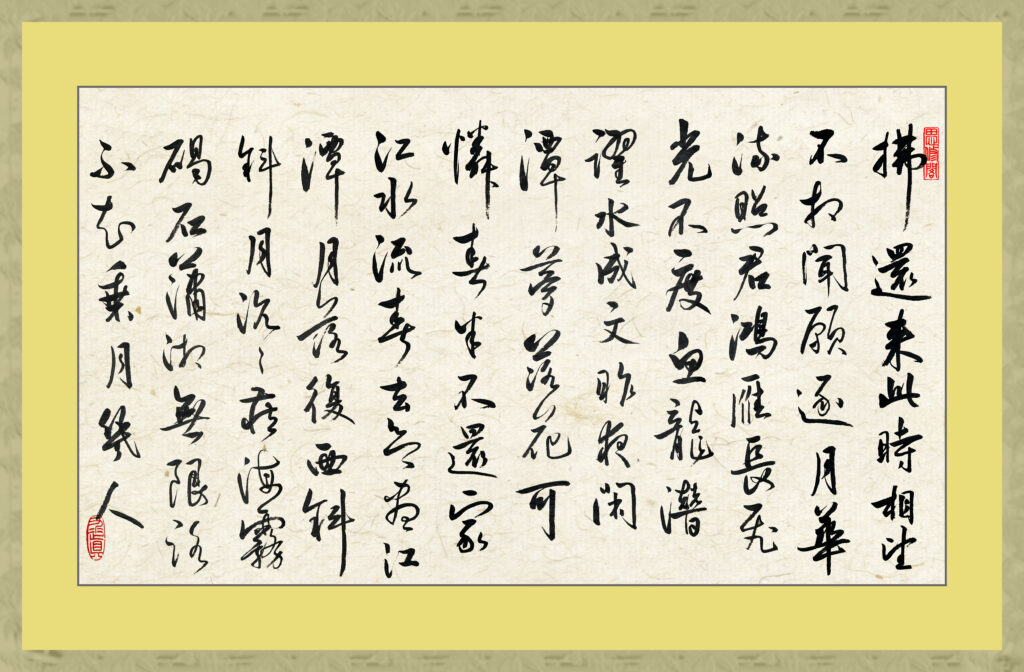 拂還来此時相望
不相聞願逐月華
流照君鴻雁長飛
光不度魚龍潛
躍水成文昨夜閑
潭夢落花可
憐春半不還家
江水流春去欲盡江
潭月落復西斜
斜月沉〻藏海霧
碣石瀟湘無限路
不知乘月幾人